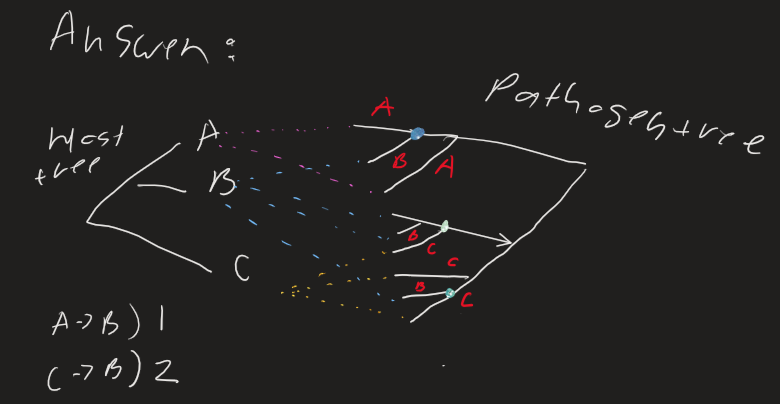 Answer:
Host tree
Pathogen tree
A
B
C
A
B
A
B
C
C
B
C
A -> B) 1
C -> B) 2